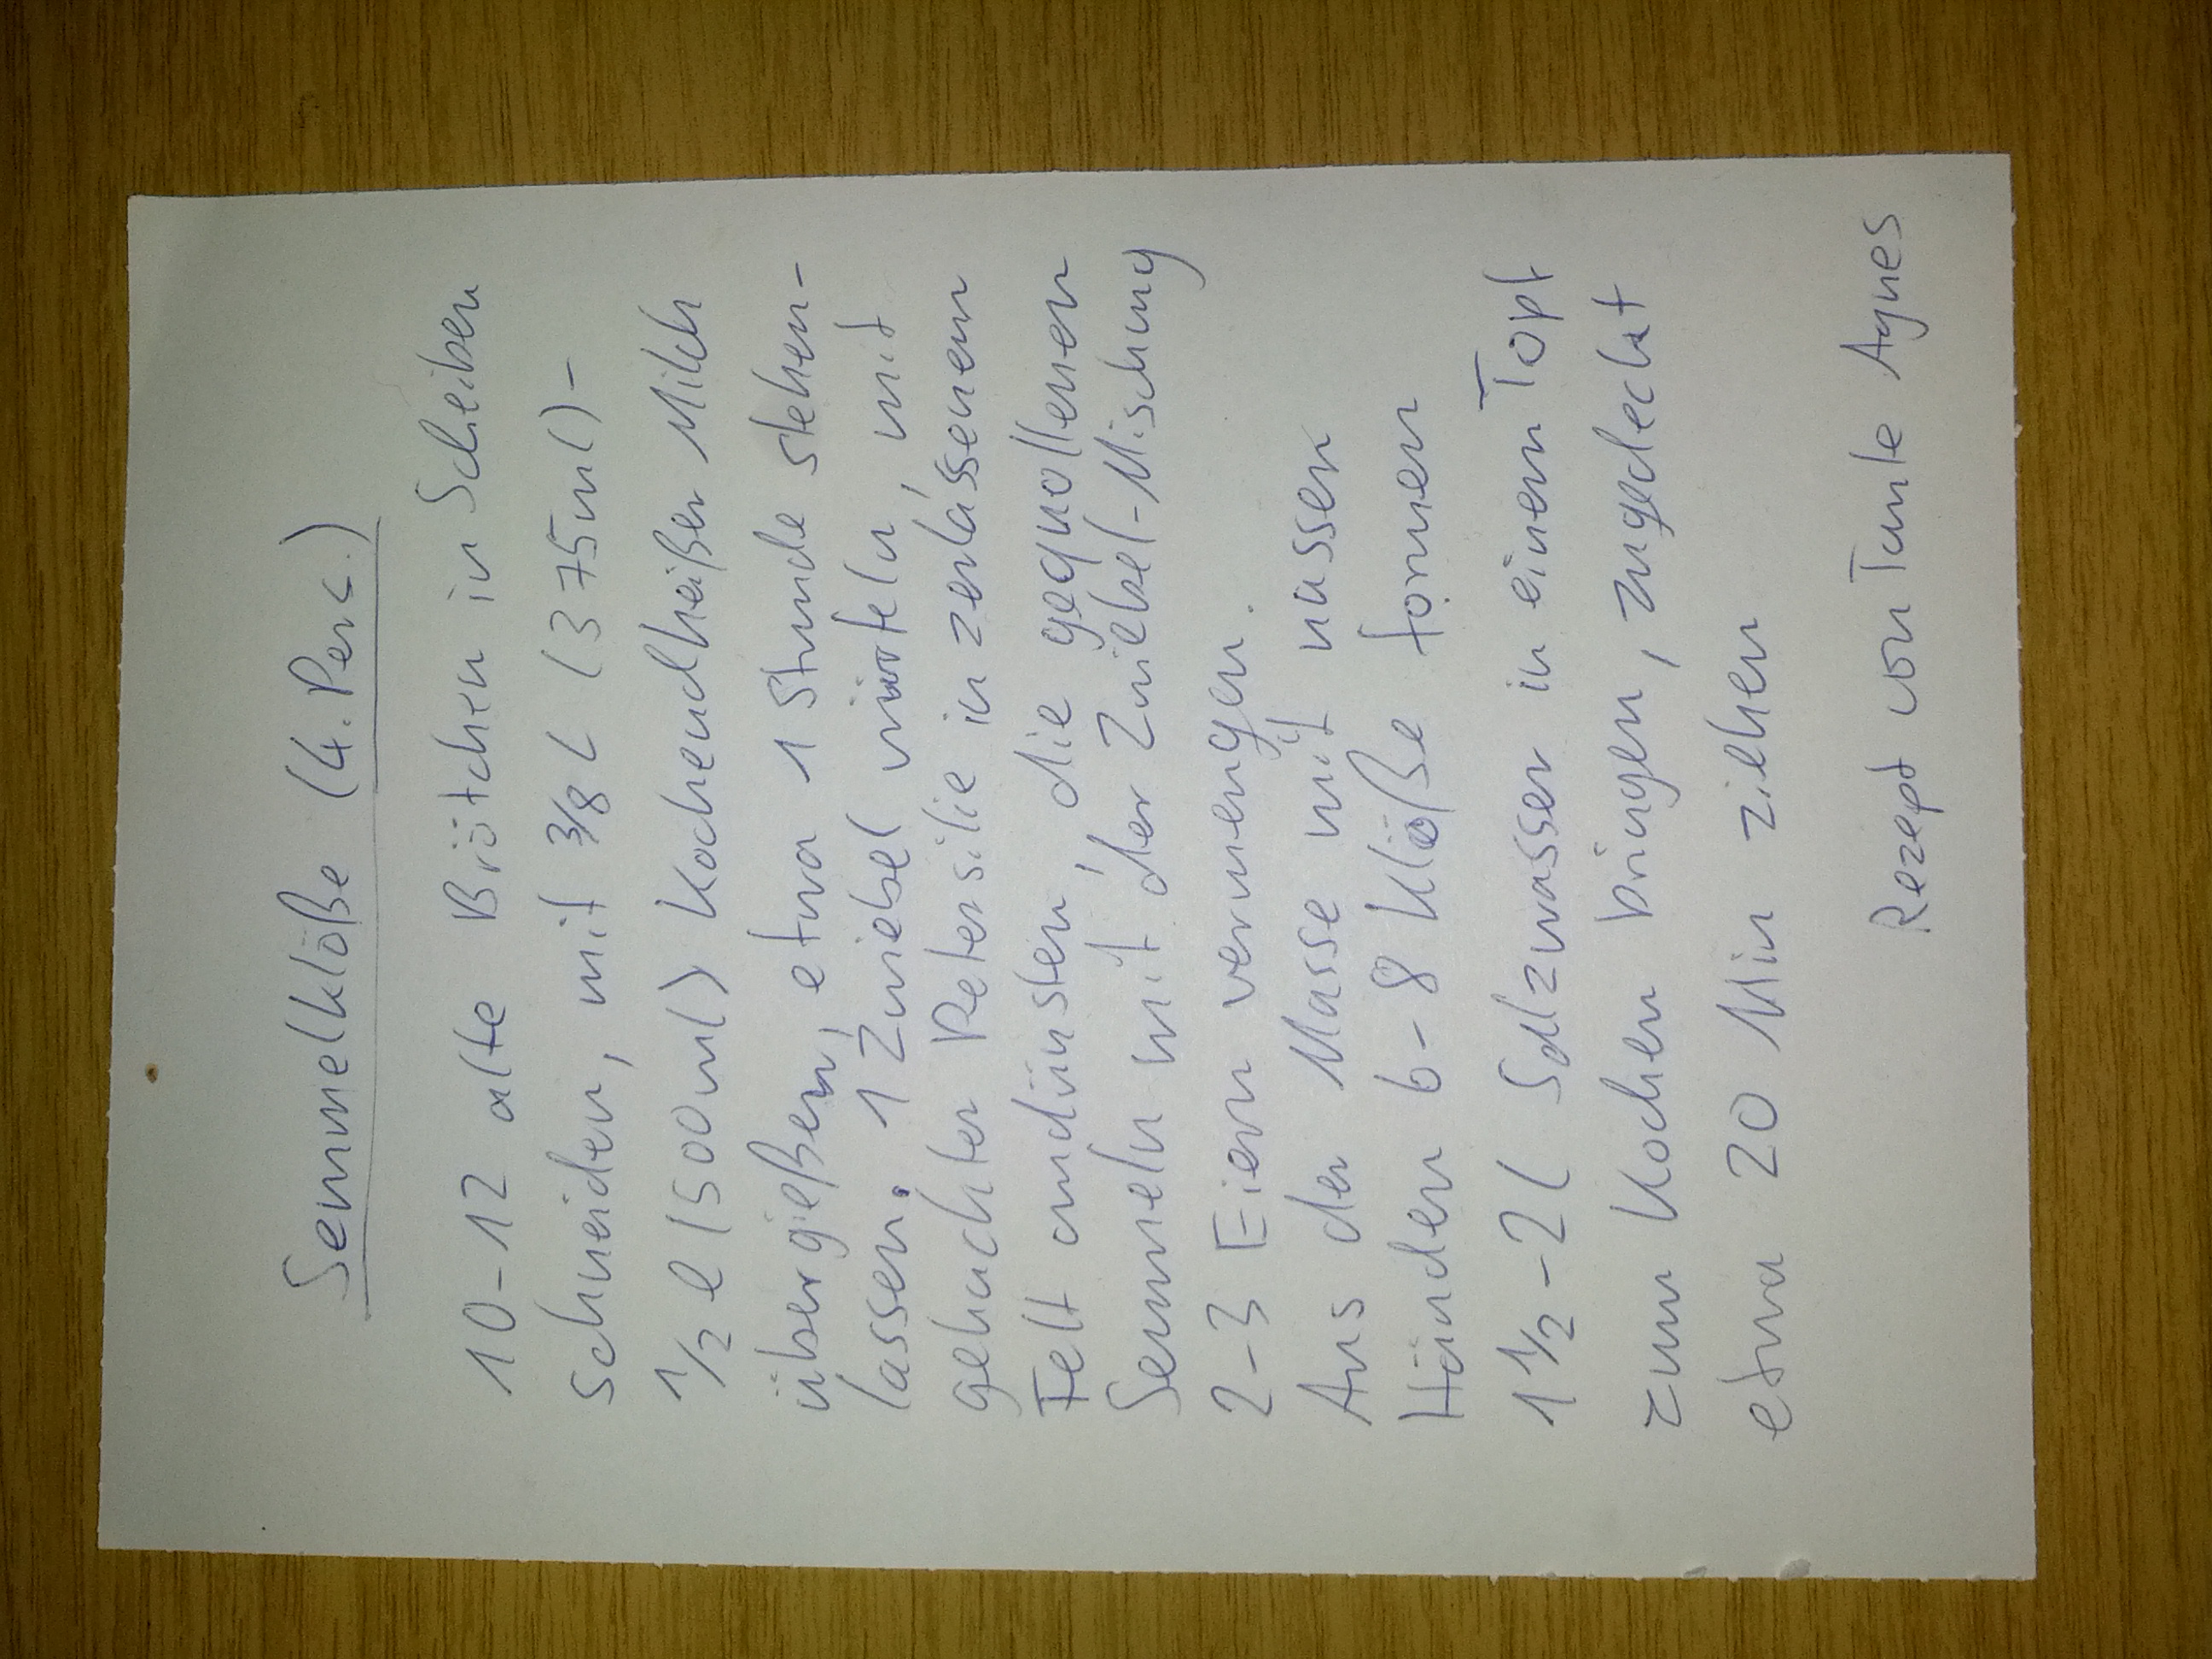 Semmelklöße (4. Pers.)
10-12 alte Brötchen in Scheiben
schneiden, mit 3/8 L (375ml)-
1/2 l (500ml) kochendheißer Milch
übergießen, etwa 1 Stunde stehen-
lassen. 1 Zwiebel würfeln, mit
gehackter Petersilie in zerlassenem
Fett andünsten, die gequollenen
Semmeln mit der Zwiebel-Mischung
2-3 Eiern vermengen.
Aus der Masse mit nassen
Händen 6-8 Klöße formen
1 1/2-2 l Salzwasser in einem Topf
zum Kochen bringen, zugedeckt
etwa 20 Min ziehen
Rezept von Tante Agnes